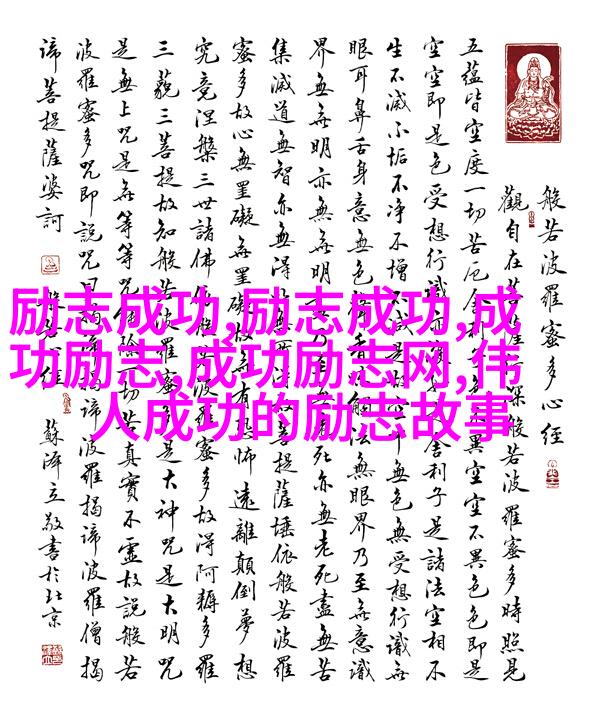 励志成功,励志成功,成
功励志,成功励志网,伟
人成功的励志故事
般若波羅蜜多心經
觀自在菩薩行深般若波羅蜜多時照見
五蘊皆空度一切苦厄舍利子色不異空空不異色色即是
空空即是色受想行識亦復如是舍利子是諸法空相不
生不滅不垢不净不增不減是故空中無色無受想行識無
眼耳鼻舌身意無色聲香味觸法無眼界乃至無意識
界無無明亦無無明盡乃至無老死亦無老死盡無苦
集滅道無智亦無得以無所得故菩提薩埵依般若波羅
蜜多故心無罣礙無罣礙故無有恐怖遠離顛倒夢想
究竟涅槃三世諸佛依般若波羅蜜多故得阿耨多羅
三藐三菩提故知般若波羅蜜多是大神咒是大明咒
是無上咒是無等等咒能除一切苦真實不虛故說般若
波羅蜜多咒即說咒曰揭諦揭諦波羅揭諦波羅僧揭
諦菩提薩婆訶
般若心經
蘇澤立敬書於北京